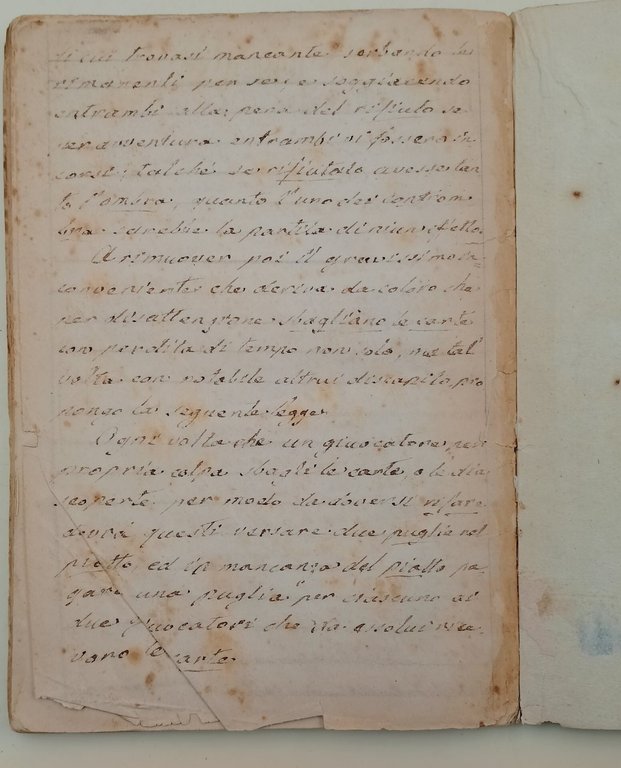 di cui trovasi mancante serbando li
rimanenti per se, e soggiacendo
entrambi alla pena del rifiuto se
peravventura entrambi vi fossero in
corsi; talchè se rifiutato avesse tan
to l'ombra, quanto l'uno dei controm
bra sarebbe la partita di niun effetto.
A rimuover poi il gravissimo in=
conveniente che deriva da coloro che
per disattenzione sbagliano le carte
con perdita di tempo non solo, ma tal
volta con notabile altrui discapito pro
pongo la seguente legge
Ogni volta che un giuocatore per
propria colpa sbagli le carte, o le dia
scoperte per modo da doversi rifare
dovrà questi versare due puglie nel
piatto, ed in mancanza del piatto pa-
gare una puglia per ciascuno ai
due giuocatori che da esso lui rice-
vono le carte